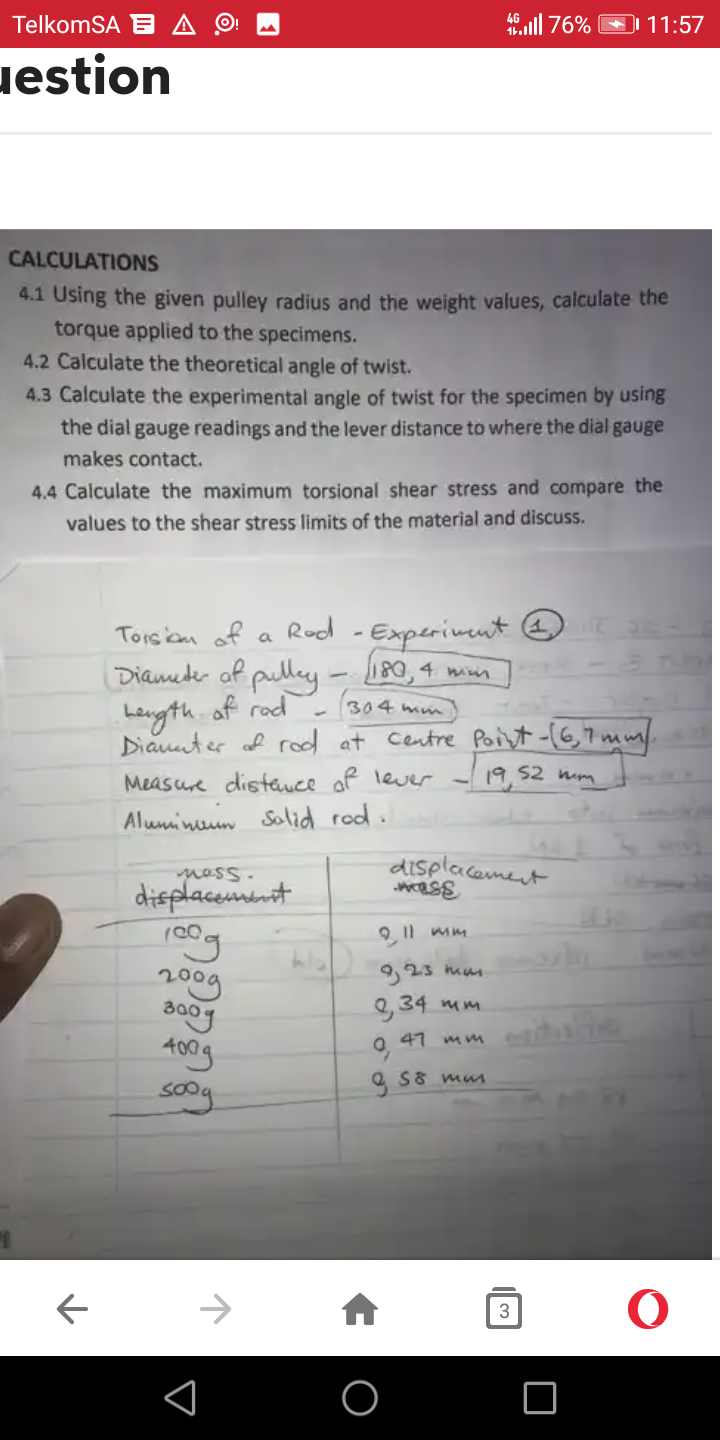 TelkomSA
4G 76% 11:57
uestion
CALCULATIONS
4.1 Using the given pulley radius and the weight values, calculate the
torque applied to the specimens.
4.2 Calculate the theoretical angle of twist.
4.3 Calculate the experimental angle of twist for the specimen by using
the dial gauge readings and the lever distance to where the dial gauge
makes contact.
4.4 Calculate the maximum torsional shear stress and compare the
values to the shear stress limits of the material and discuss.
Torsion of a Rod - Experiment 1
Diameter of pulley - 180,4 mm
Length of rod - 304 mm
Diameter of rod at Centre Point - 6,7 mm
Measure distance of lever - 19,52 mm
Aluminium Solid rod.
mass. displacement
displacement mass
100g 0,11 mm
200g 0,23 mm
300g 0,34 mm
400g 0,47 mm
500g 0,58 mm
3